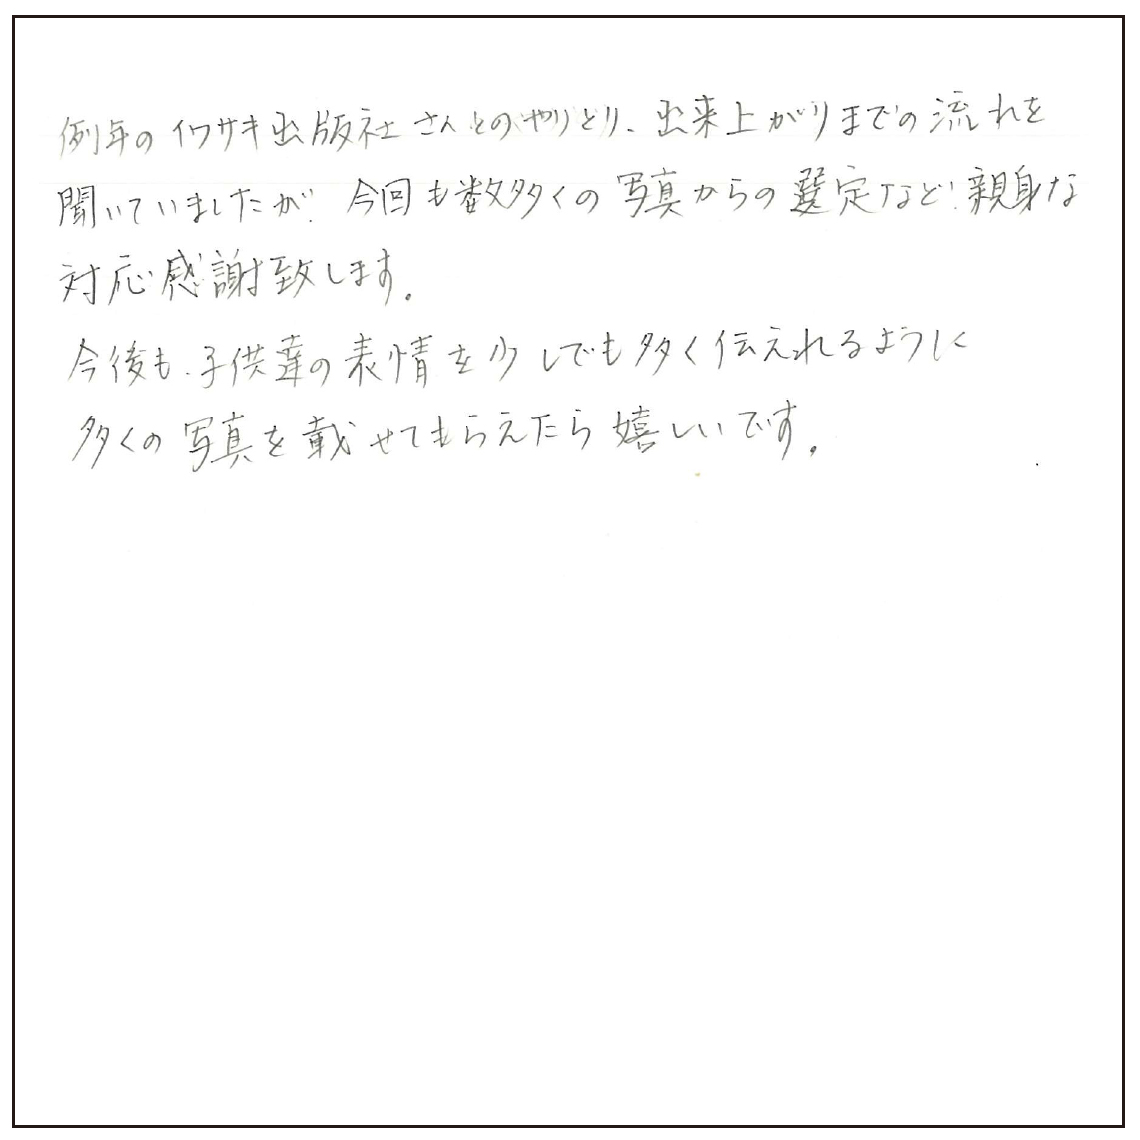 例年のイワサキ出版社さんとのやりとり、出来上がりまでの流れを
聞いていましたが、今回も数多くの写真からの選定など、親身な
対応感謝致します。
今後も、子供達の表情を少しでも多く伝えれるように
多くの写真を載せてもらえたら嬉しいです。